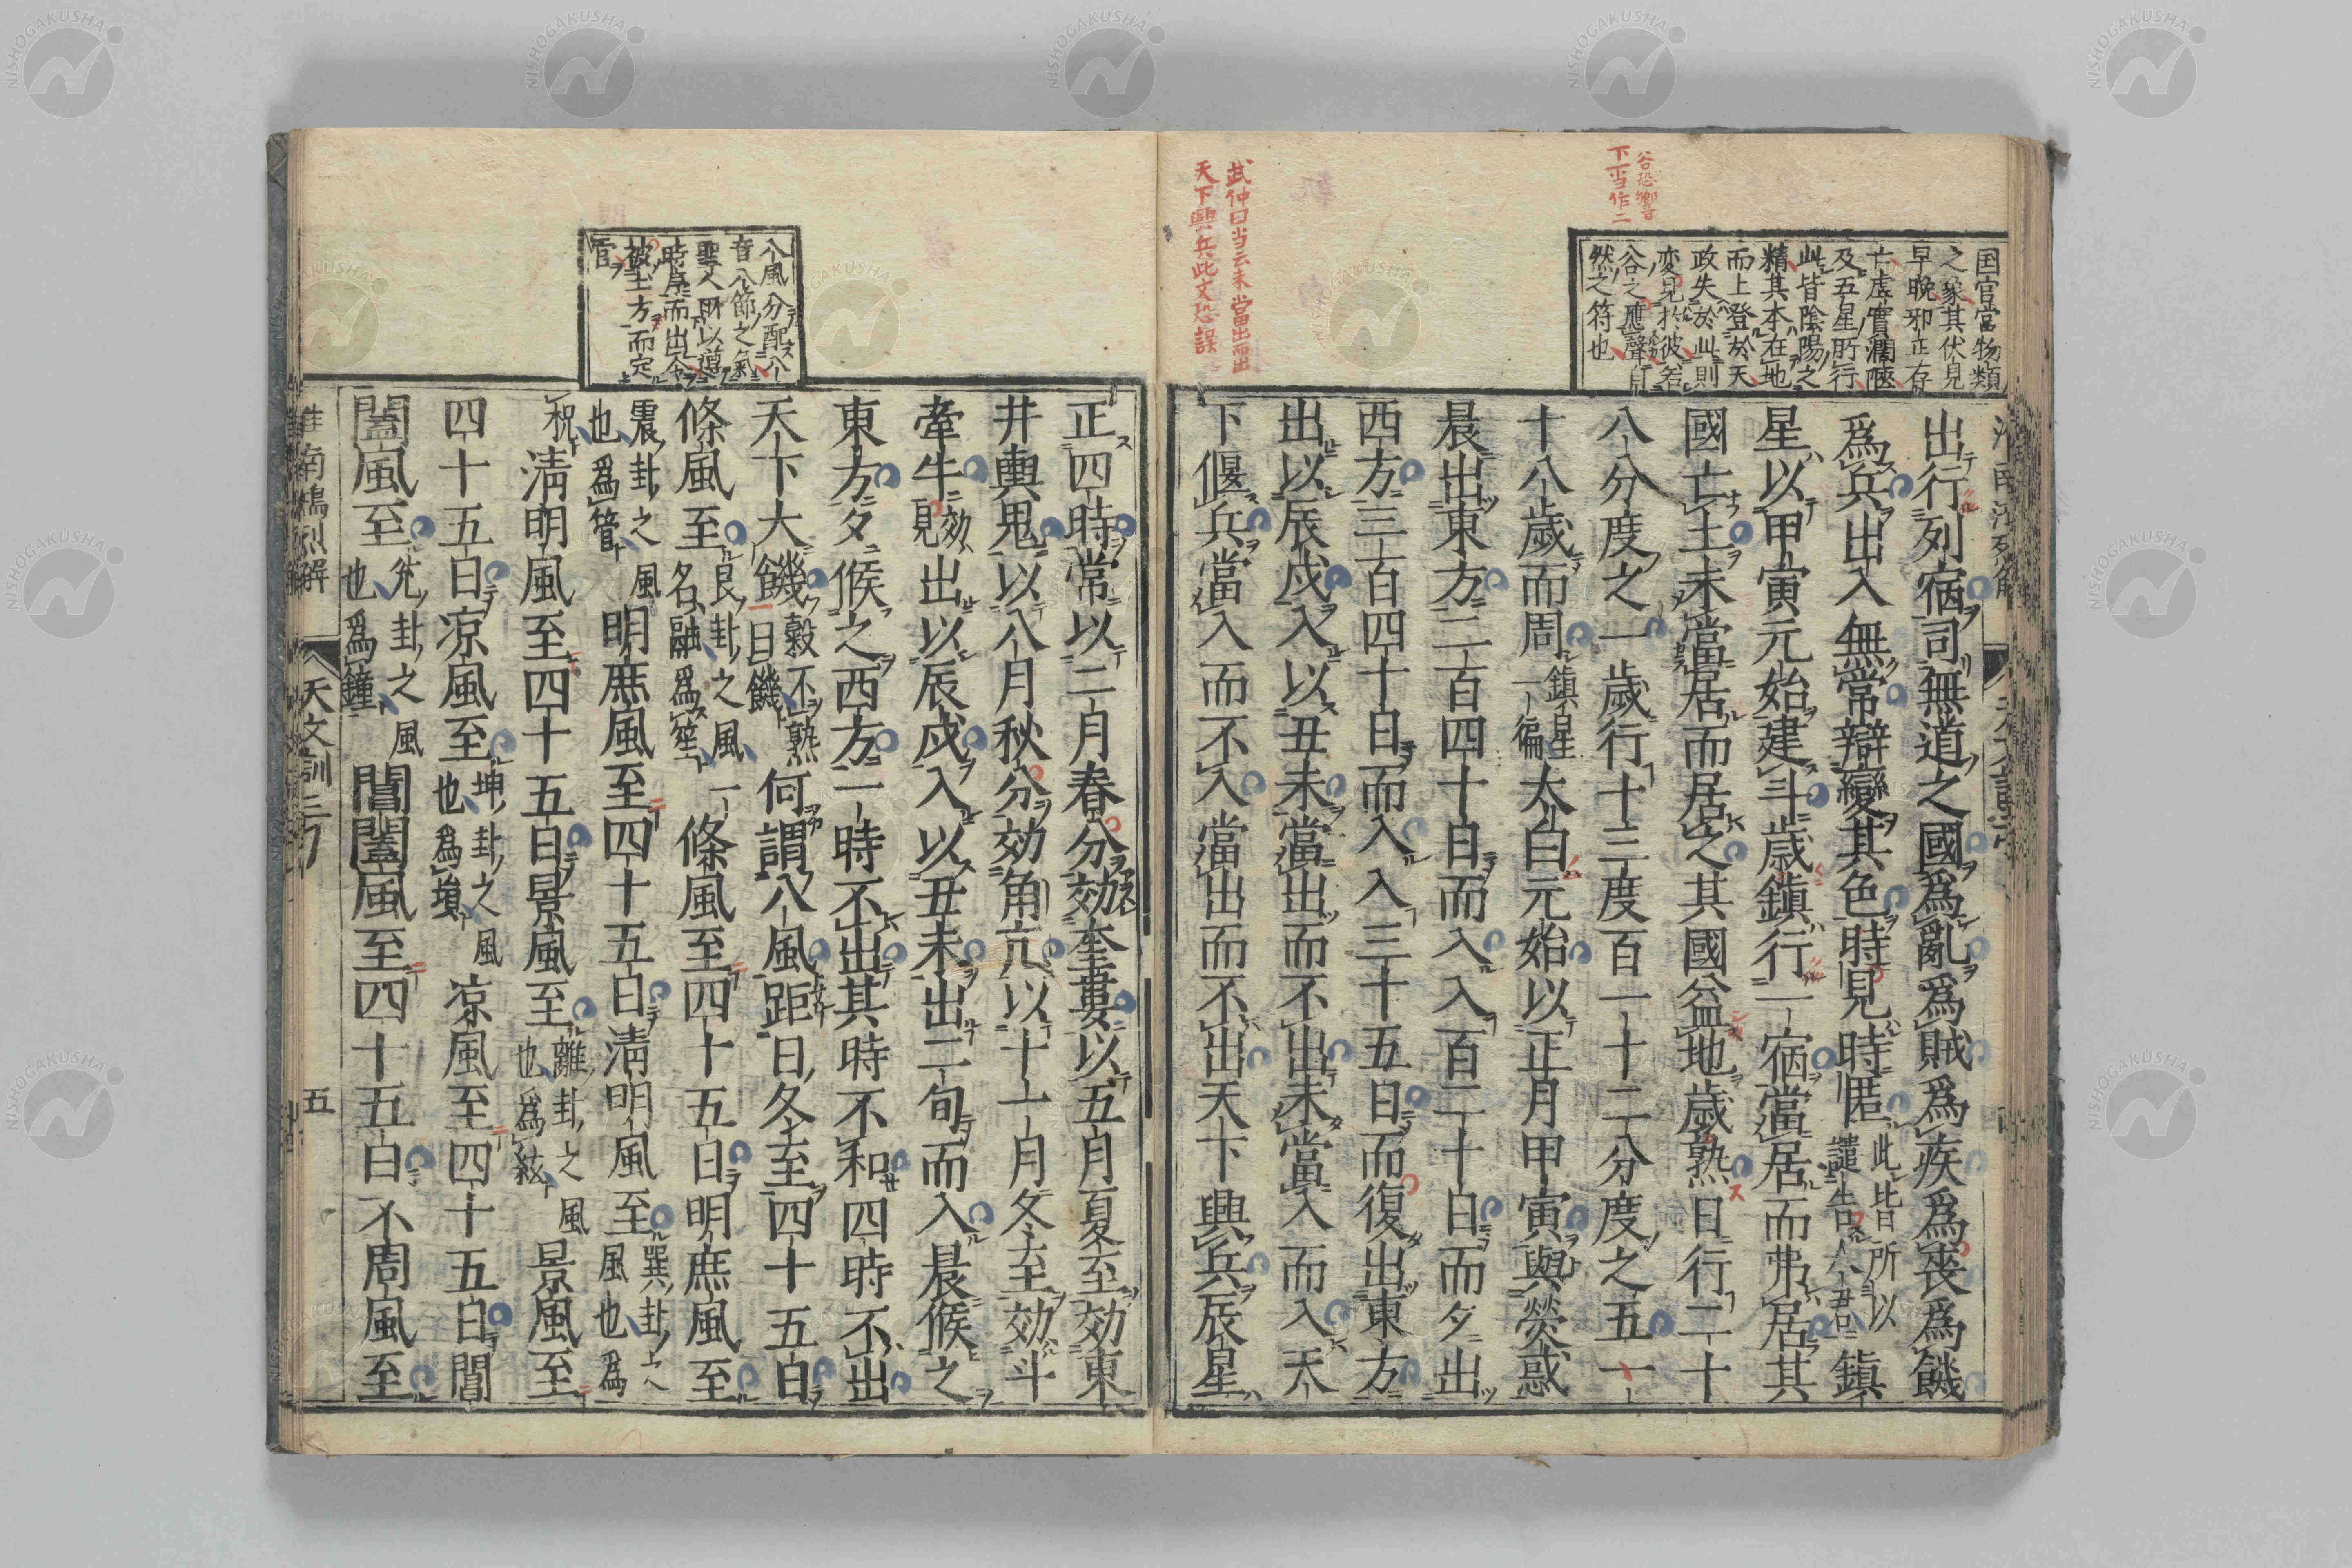 谷恐響音
下一当作二
国官當物類
之象其伏見
早晚邪正存
亡虛實濶陿
及五星所行
此皆陰陽之
精其本在地
而上登於天
政失於此則
変見於彼若
谷之應聲自
然之符也
武仲曰当云未當出而出
天下興兵此文恐誤
出行列宿司無道之國爲亂爲賊爲疾爲喪爲饑
爲兵出入無常辯變其色時見時匿此皆所以譴告人君鎮
星以甲寅元始建斗歳鎮行一宿當居而弗居其
國亡土未當居而居之其國益地歳熟日行二十
八分度之一歳行十三度百一十二分度之五一
十八歳而周鎮星一徧太白元始以正月甲寅與熒惑
晨出東方二百四十日而入入百二十日而夕出
西方二百四十日而入入三十五日而復出東方
出以辰戌入以丑未當出而不出未當入而入天
下偃兵當入而不入當出而不出天下興兵辰星
正四時常以二月春分効奎婁以五月夏至効東
井輿鬼以八月秋分効角亢以十一月冬至効斗
牽牛効見出以辰戌入以丑未出二旬而入晨候之
東方夕候之西方一時不出其時不和四時不出
天下大饑穀不熟曰饑何謂八風距日冬至四十五日
條風至艮卦之風一名融爲笙條風至四十五日明庶風至
震卦之風也爲管明庶風至四十五日清明風至巽卦之風也爲
柷清明風至四十五日景風至離卦之風也爲絃景風至
四十五日凉風至坤卦之風也爲塤凉風至四十五日閶
闔風至兊卦之風也爲鐘閶闔風至四十五日不周風至
八風分配八
音八節之氣
聖人所以導
時序而出令
被土方而定
官
淮南鴻烈解
天文訓三
五
NISHOGAKUSHA